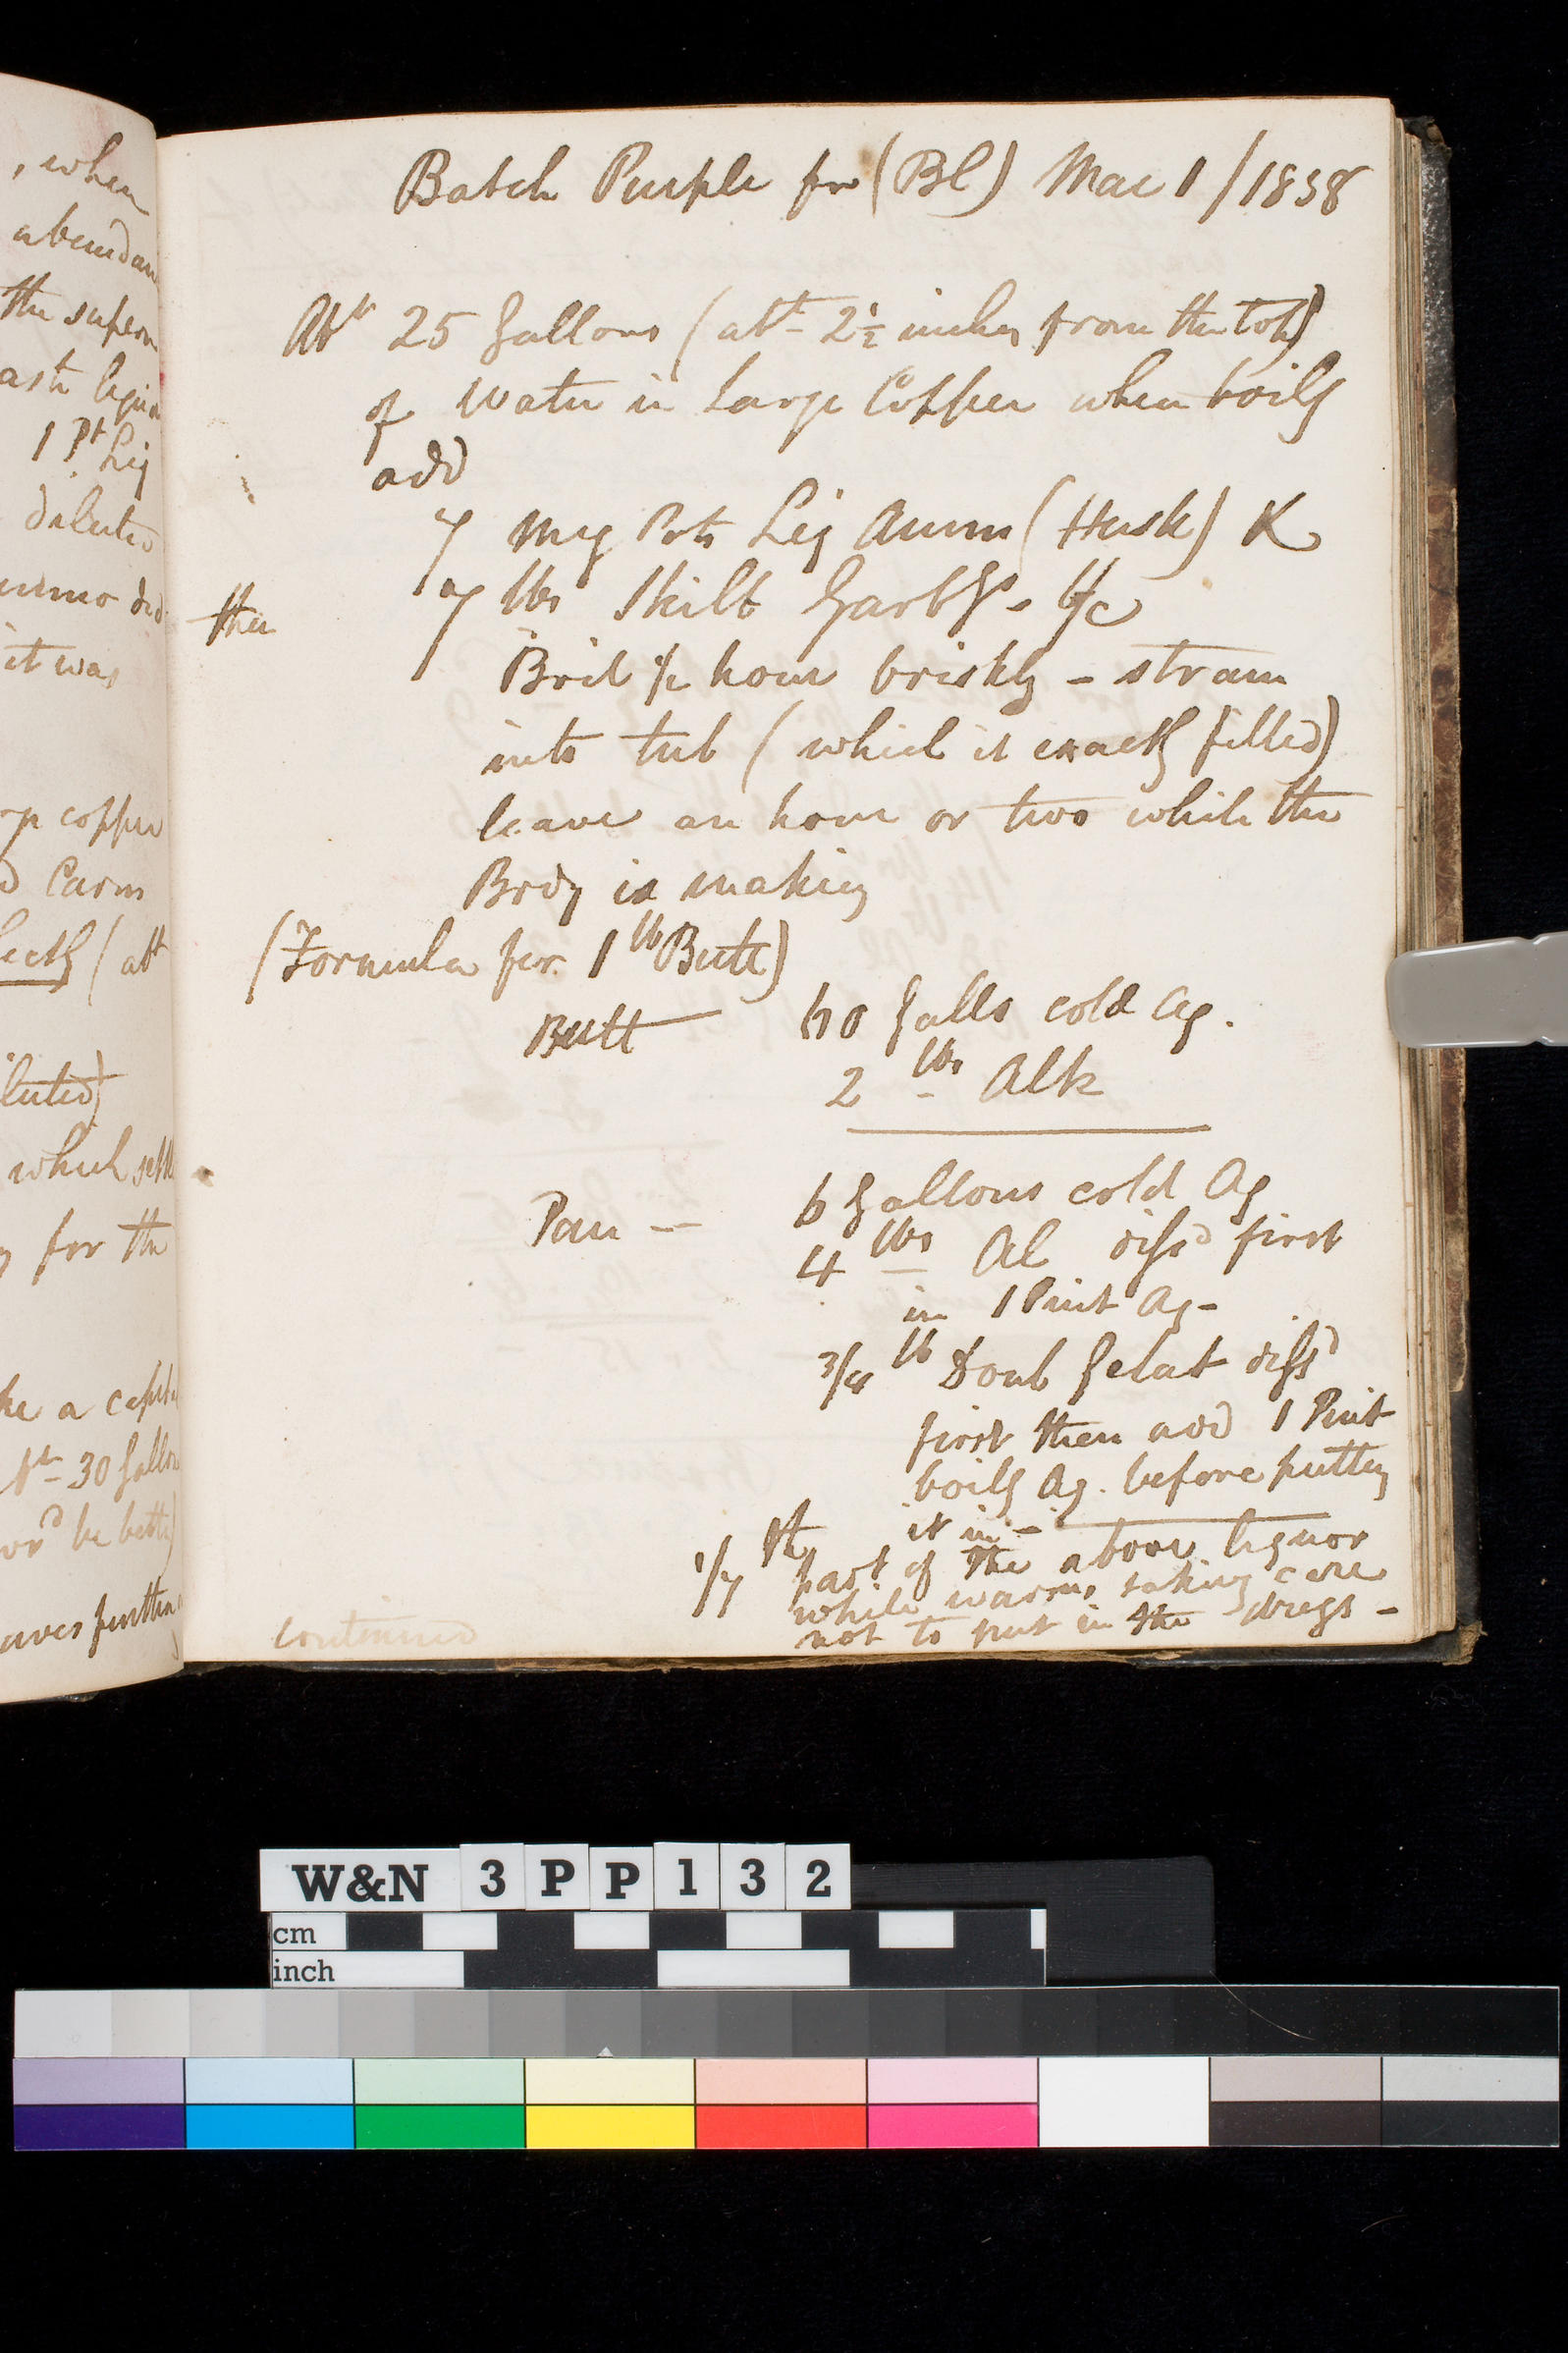 , when
abundan
the supern
1 Pt Liq
diluted
it was
copper
Carm
(abt
luted)
which settl
for the
ke a
30 Gallon
wd be bett
Batch Purple for (Bl) Mar 1 / 1838
Abt 25 Gallons (abt 2½ inches from the top)
of Water in Large Copper when boilg
add
7 Meg Pots Liq Amm (Husk) K
then 7 lbs Skilb Garbgs - G/c
Boil ½ hour briskly - strain
into tub (which is exactly filled)
leave an hour or two while the
Body is making
(Formula for 1 lb Butt)
Butt — 60 Galls cold Aq.
2 lbs Alk
Pan — 6 Gallons cold Aq
4 lbs Al dissd first
in 1 Pint Aq -
3/8 lb Doub Gelat dissd
first then add 1 Pint
boilg Aq. before putting
it in -
1/7th part of the above liquor
while warm, taking care
not to put in the dregs -
continued
W&N 3PP132
cm
inch